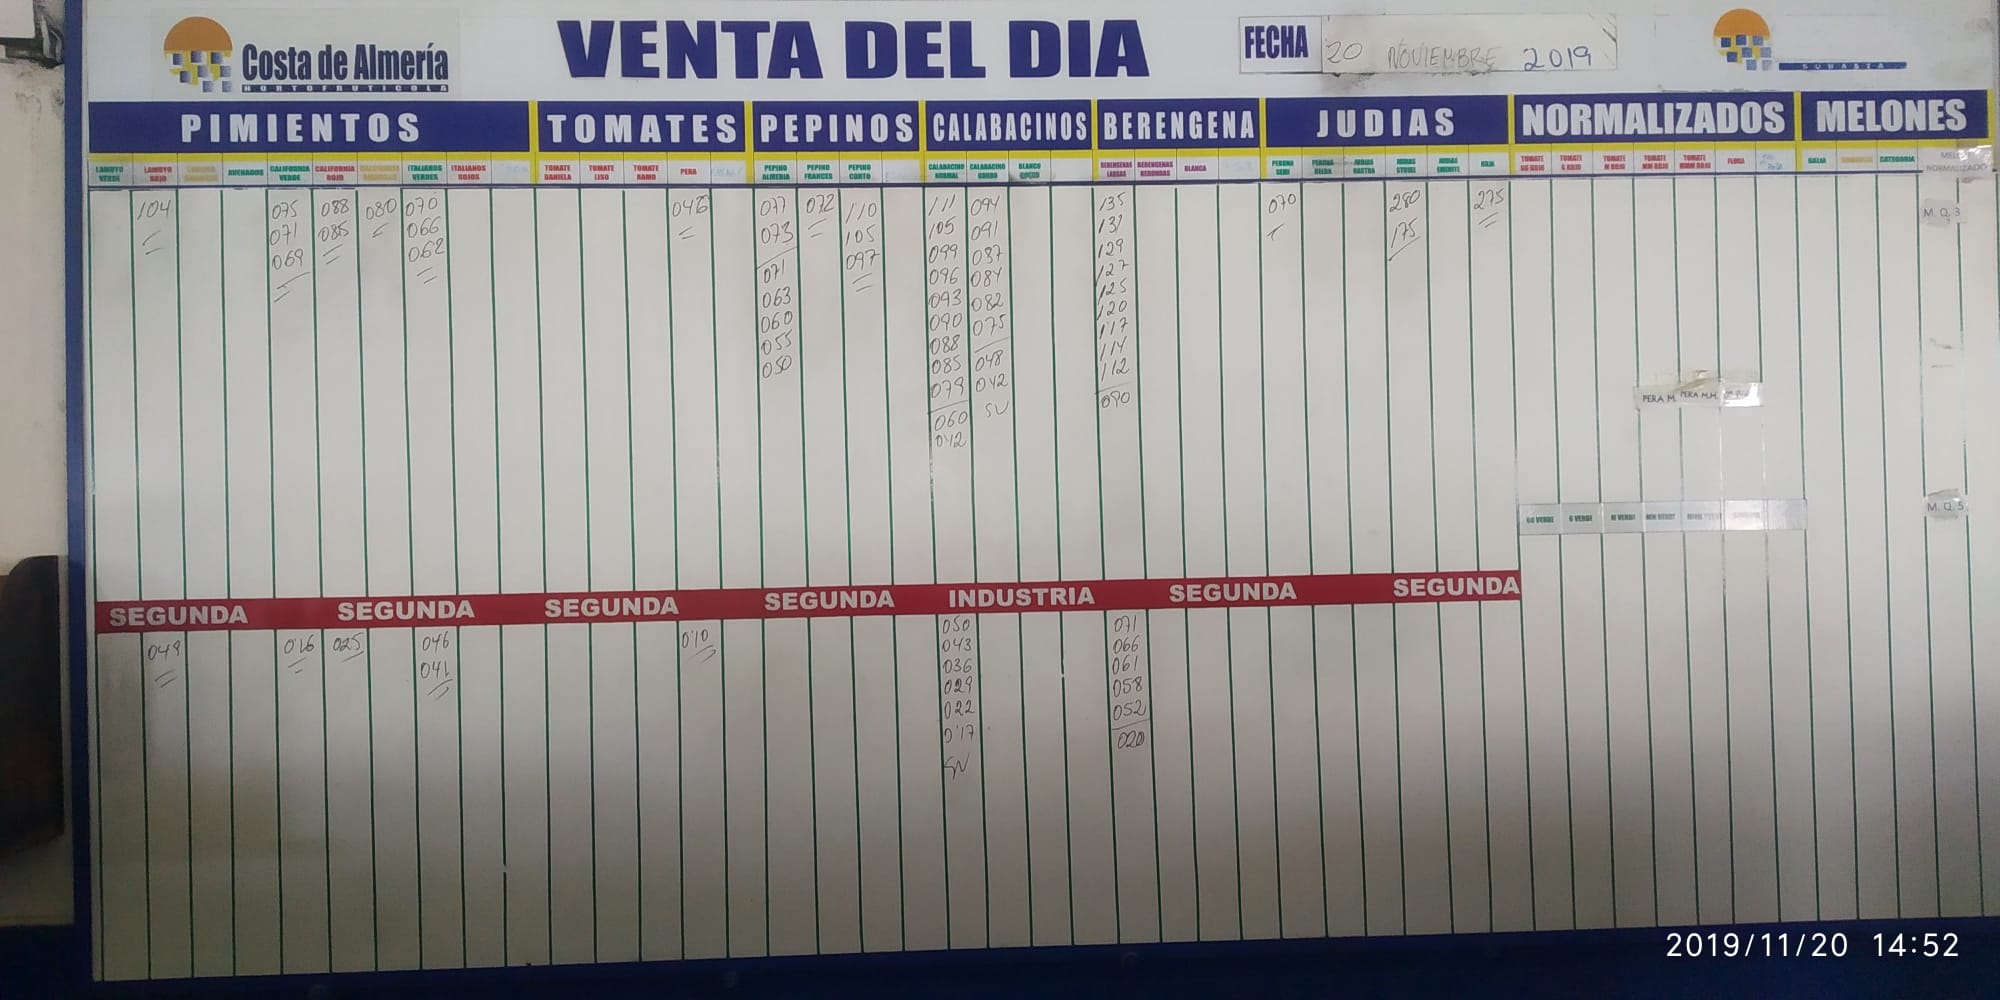 Costa de Almería
HORTOFRUTICOLA
VENTA DEL DIA
FECHA 20 NOVIEMBRE 2019
SUBASTA
PIMIENTOS TOMATES PEPINOS CALABACINOS BERENGENA JUDIAS NORMALIZADOS MELONES
LAMUYO VERDE LAMUYO ROJO AVENADOS CALIFORNIA VERDE CALIFORNIA ROJO CALIFORNIA AMARILLO ITALIANOS VERDES ITALIANOS ROJOS TOMATE DANIELA TOMATE LISO TOMATE RAMO PERA PEPINO ALMERIA PEPINO FRANCES PEPINO CORTO CALABACINO NORMAL CALABACINO GORDO BLANCO BERENGENAS LARGAS BERENGENAS REDONDAS BLANCA PERONA SEMI PERONA JUDIAS RASTRA JUDIAS STRIKE JUDIAS EMERITE ROJA TOMATE GG ROJO TOMATE G ROJO TOMATE M ROJO TOMATE MM ROJO TOMATE MMM ROJO FLOSA GALIA CATEGORIA NORMALIZADO
104 075 088 080 070 046 077 072 110 111 094 135 070 280 275 M. Q. 3
071 085 066 073 105 105 091 131 175
069 062 071 097 099 087 129
063 096 084 127
060 093 082 125
055 090 075 120
050 088 048 117
085 042 114
079 SV 112
060 090
042
PERA M. PERA M.M.
GG VERDE G VERDE M VERDE MM VERDE M. Q. 5
SEGUNDA SEGUNDA SEGUNDA SEGUNDA INDUSTRIA SEGUNDA SEGUNDA
049 016 025 046 010 050 071
041 043 066
036 061
029 058
022 052
017 020
SV
2019/11/20 14:52